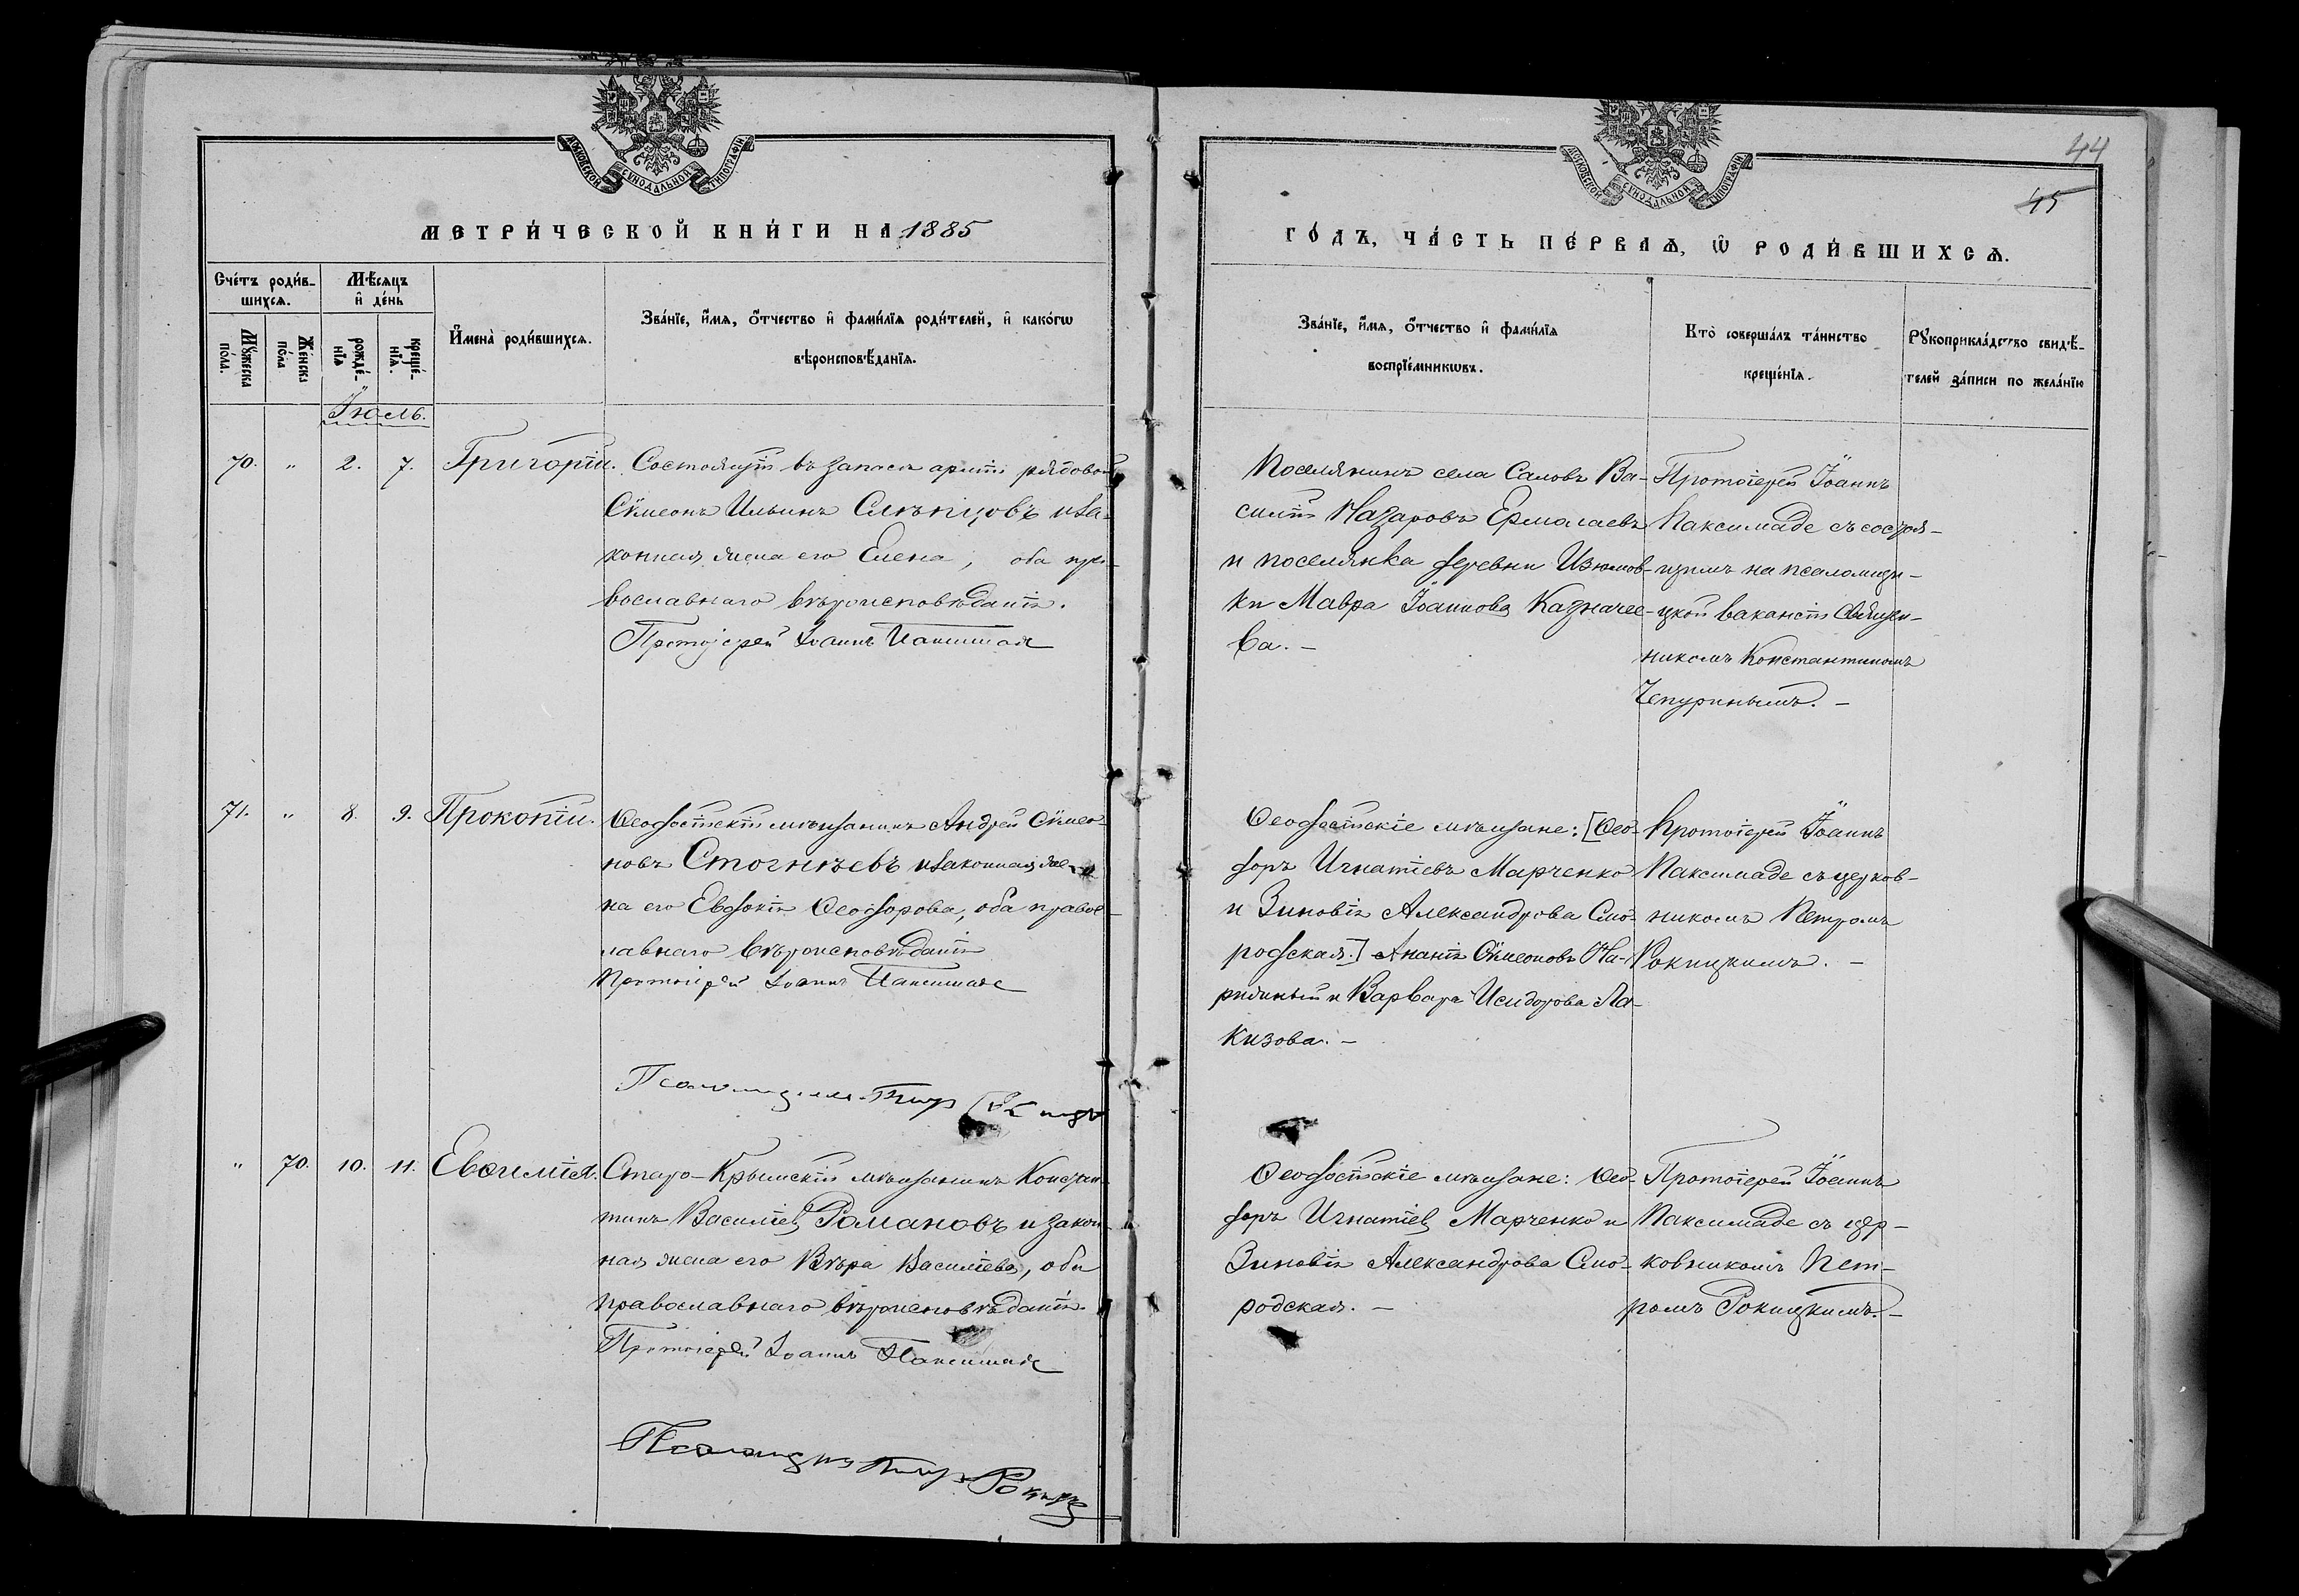 МОСКОВСКОЙ СѴНОДАЛЬНОЙ ТИПОГРАФІИ
МЕТРИ́ЧЕСКОЙ КНИ́ГИ НА 1885
Сче́тъ роди́в-
шихсѧ.
Мѣ́сѧцъ
и҆ де́нь
Мꙋ́жеска
по́ла.
Же́нска
по́ла
рожде́-
нїѧ
креще́-
нїѧ.
И҆мена̀ роди́вшихсѧ.
Зва́нїе, и҆́мѧ, ѻ҆́тчество и҆ фами́лїѧ роди́телей, и҆ како́гѡ
вѣроисповѣ́данїѧ.
Іюль.
70. " 2. 7. Григорій. Состоящій въ запасѣ арміи рядовой
Сѵмеонъ Ильинъ Слѣпцовъ и за-
конная жена его Елена, оба пра-
вославнаго вѣроисповѣданія.
Протоіерей Іоаннъ Паксимаде
71. " 8. 9. Прокопій. Ѳеодосійскій мѣщанинъ Андрей Сѵмео-
новъ Стогнѣевъ и законная же-
на его Евдокія Ѳеодорова, оба правос-
лавнаго вѣроисповѣданія
Протоіерей Іоаннъ Паксимаде
Псаломщикъ Петръ
" 70. 10. 11. Евѳимія. Старо-Крымскій мѣщанинъ Констан-
тинъ Василіев Романовъ и закон-
ная жена его Вѣра Василіева, оба
православнаго вѣроисповѣданія.
Протоіерей Іоаннъ Паксимаде
Псаломщикъ Петръ Рокицк
МОСКОВСКОЙ СѴНОДАЛЬНОЙ ТИПОГРАФІИ
44
45
ГО́ДЪ, ЧА́СТЬ ПЕ́РВАѦ, Ѡ҆ РОДИ́ВШИХСѦ.
Зва́нїе, и҆́мѧ, ѻ҆́тчество и҆ фами́лїѧ
воспрїе́мникѡвъ.
Кто̀ соверша́лъ та́инство
креще́нїѧ.
Рꙋкоприкла́дство свидѣ́-
телей за́писи по жела́нїю
Поселянинъ села Саловъ Ва-
силій Назаровъ Ермолаевъ
и поселянка деревни Изюмов-
ки Мавра Іоаннова Казначее-
ва. -
Протоіерей Іоаннъ
Паксимаде съ состоя-
щимъ на псаломщи-
цкой вакансіи Священ-
никомъ Константиномъ
Чепуринымъ. -
Ѳеодосійскіе мѣщане: [Ѳео-
доръ Игнатіевъ Марченко
и Зиновія Александрова Смо-
родская.] Ананія Сѵмеоновъ На-
рижный и Варвара Исидорова Ла-
кизова. -
Протоіерей Іоаннъ
Паксимаде съ церков-
никомъ Петромъ
Рокицкимъ. -
Ѳеодосійскіе мѣщане: Ѳео-
доръ Игнатіев Марченко и
Зиновія Александрова Смо-
родская. -
Протоіерей Іоаннъ
Паксимаде съ цер-
ковникомъ Пет-
ромъ Рокицкимъ. -